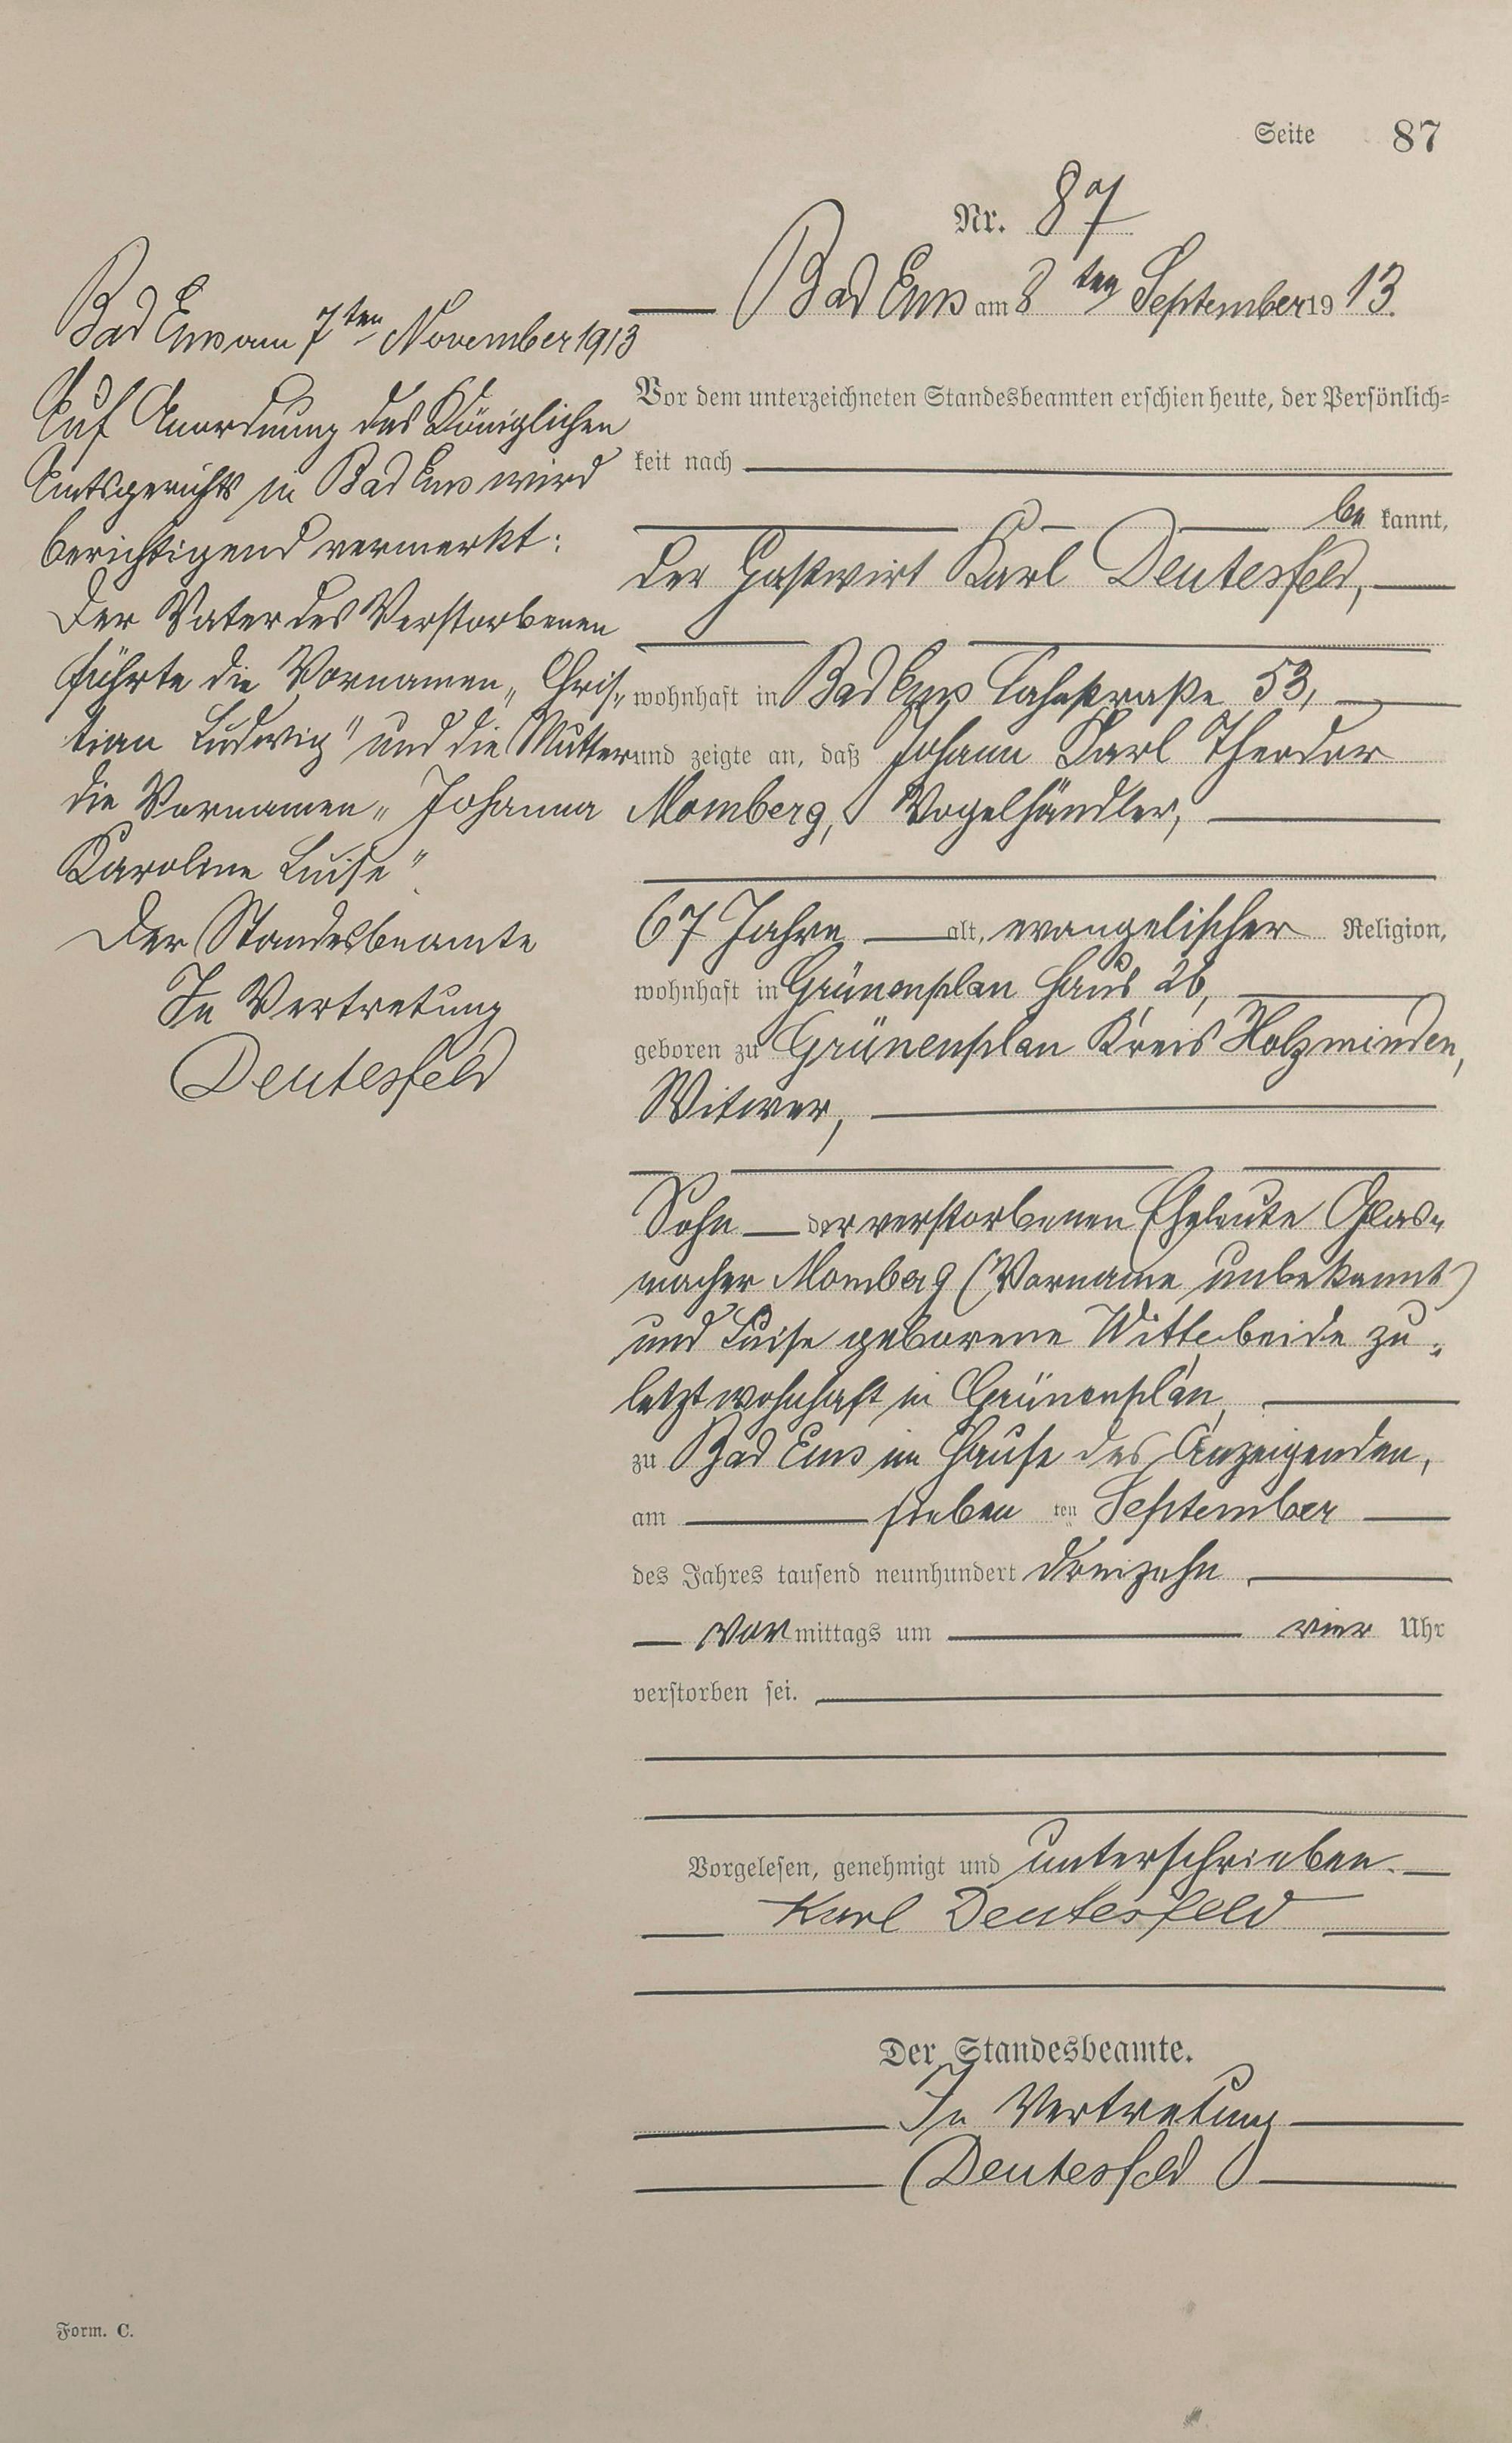 Seite 87
Nr. 87
Bad Ems am 8ten September 1913.
Vor dem unterzeichneten Standesbeamten erschien heute, der Persönlich=
keit nach
be kannt,
der Gastwirt Karl Deutesfeld,
wohnhaft in Bad Ems Lahnstraße 53,
und zeigte an, daß Johann Karl Theodor
Momberg, Vogelhändler,
67 Jahre alt, evangelischer Religion,
wohnhaft in Grünenplan Haus 26,
geboren zu Grünenplan Kreis Holzminden,
Witwer,
Sohn der verstorbenen Eheleute Glas„
macher Momberg (Vorname unbekannt)
und Luise geborene Witte beide zu„
letzt wohnhaft in Grünenplan,
zu Bad Ems im Hause des Anzeigenden,
am sieben ten September
des Jahres tausend neunhundert dreizehn
vor mittags um vier Uhr
verstorben sei.
Vorgelesen, genehmigt und unterschrieben.
Karl Deutesfeld
Der Standesbeamte.
In Vertretung
Deutesfeld
Bad Ems am 7ten November 1913
Auf Anordnung des Königlichen
Amtsgerichts in Bad Ems wird
berichtigend vermerkt:
Der Vater des Verstorbenen
führte die Vornamen „Chris„
tian Ludwig" und die Mutter
die Vornamen „Johanna
Karoline Luise"
Der Standesbeamte
In Vertretung
Deutesfeld
Form. C.